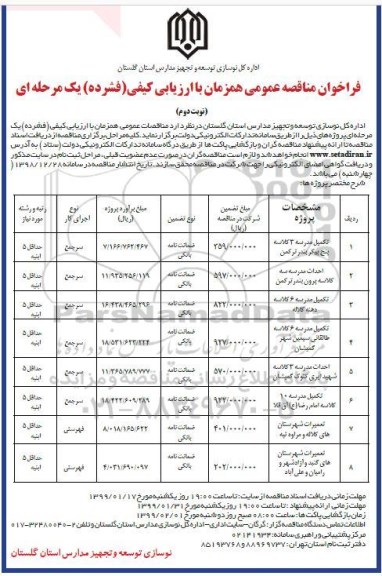 اداره کل نوسازی توسعه و تجهیز مدارس استان گلستان
فراخوان مناقصه عمومی همزمان با ارزیابی کیفی (فشرده) یک مرحله ای
(نوبت دوم)
اداره کل نوسازی توسعه و تجهیز مدارس استان گلستان در نظر دارد مناقصات عمومی همزمان با ارزیابی کیفی (فشرده) یک
مرحله ای پروژه های ذیل را از طریق سامانه تدارکات الکترونیکی دولت برگزار نماید. کلیه مراحل برگزاری مناقصه از دریافت اسناد
مناقصه تا ارائه پیشنهاد مناقصه گران و بازگشایی پاکت ها از طریق درگاه سامانه تدارکات الکترونیکی دولت (ستاد) به آدرس
www.setadiran.ir انجام خواهد شد و لازم است مناقصه گران در صورت عدم عضویت قبلی، مراحل ثبت نام در سایت مذکور
و دریافت گواهی امضای الکترونیکی را جهت شرکت در مناقصه محقق سازند. تاریخ انتشار مناقصه در سامانه ۱۳۹۸/۱۲/۲۸
چهارشنبه می باشد.
شرح مختصر پروژه ها:
ردیف مشخصات پروژه مبلغ تضمین شرکت در مناقصه (ریال) نوع تضمین مبلغ برآورد پروژه (ریال) نوع اجرای کار رتبه و رشته مورد نیاز
۱ تکمیل مدرسه ۳ کلاسه پنج پیکر بندر ترکمن ۳۵۹/۰۰۰/۰۰۰ ضمانت نامه بانکی ۷/۱۶۶/۷۶۲/۴۶۷ سرجمع حداقل ۵ ابنیه
۲ احداث مدرسه سه کلاسه پرون بندر ترکمن ۵۹۷/۰۰۰/۰۰۰ ضمانت نامه بانکی ۱۱/۹۳۵/۲۵۶/۱۱۹ سرجمع حداقل ۵ ابنیه
۳ تکمیل مدرسه ۶ کلاسه دهنه کلاله ۸۲۲/۰۰۰/۰۰۰ ضمانت نامه بانکی ۱۶/۴۳۸/۴۶۵/۲۹۶ سرجمع حداقل ۵ ابنیه
۴ تکمیل مدرسه ۶ کلاسه طالقانی سیمین شهر گمیشان ۹۲۷/۰۰۰/۰۰۰ ضمانت نامه بانکی ۱۸/۵۳۱/۶۲۳/۲۲۴ سرجمع حداقل ۵ ابنیه
۵ احداث مدرسه ۳ کلاسه شهید ایری گمیشان ۵۷۰/۰۰۰/۰۰۰ ضمانت نامه بانکی ۱۱/۳۶۵/۷۸۹/۷۷۷ سرجمع حداقل ۵ ابنیه
۶ تکمیل مدرسه ۱۰ کلاسه امام رضا (ع) آق قلا ۹۲۲/۰۰۰/۰۰۰ ضمانت نامه بانکی ۱۸/۴۲۲/۶۰۹/۲۸۹ سرجمع حداقل ۵ ابنیه
۷ تعمیرات شهرستان های کلاله و مراوه تپه ۴۰۱/۰۰۰/۰۰۰ ضمانت نامه بانکی ۸/۰۱۸/۱۶۵/۶۲۲ فهرستی حداقل ۵ ابنیه
۸ تعمیرات شهرستان های گنبد و آزادشهر و رامیان و علی آباد ۲۰۲/۰۰۰/۰۰۰ ضمانت نامه بانکی ۴/۰۳۱/۶۹۰/۰۹۷ فهرستی حداقل ۵ ابنیه
مهلت زمانی دریافت اسناد مناقصه از سایت: تا ساعت ۱۹:۰۰ روز یکشنبه مورخ ۱۳۹۹/۰۱/۱۷
مهلت زمانی ارائه پیشنهاد: تا ساعت ۱۹:۰۰ روز یکشنبه مورخ ۱۳۹۹/۰۱/۳۱
زمان بازگشایی پاکت ها: ساعت ۰۸:۰۰ صبح روز دوشنبه مورخ ۱۳۹۹/۰۲/۰۱
اطلاعات تماس دستگاه مناقصه گزار: گرگان-سایت اداری-اداره کل نوسازی مدارس استان گلستان و تلفن ۲-۳۲۴۸۰۰۴۰-۰۱۷
مرکز پشتیبانی و راهبری سامانه: ۰۲۱۴۱۹۳۴
دفتر ثبت نام استان تهران: ۸۸۹۶۹۷۳۷ و ۸۵۱۹۳۷۶۸
نوسازی توسعه و تجهیز مدارس استان گلستان
ParsNamadData